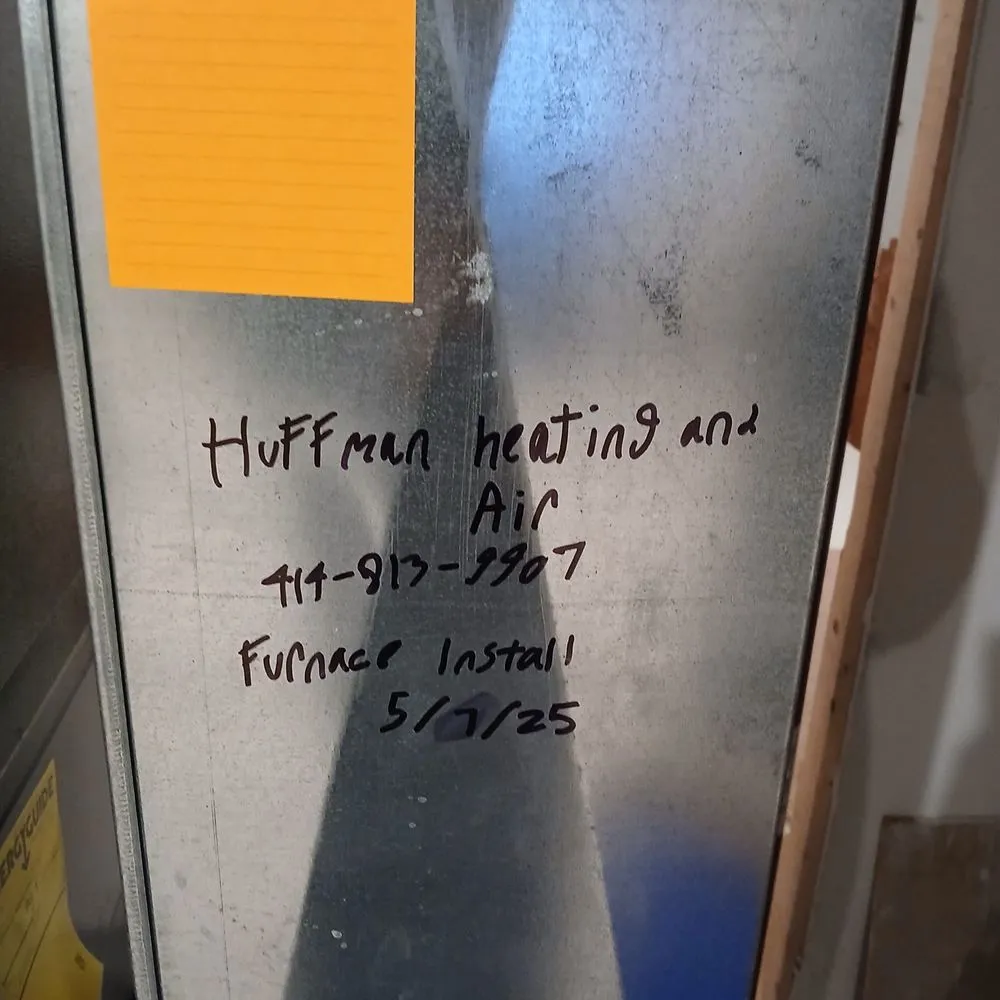 HuFFman heating and
Air
414-813-9907
Furnace Install
5/7/25
ENERGYGUIDE